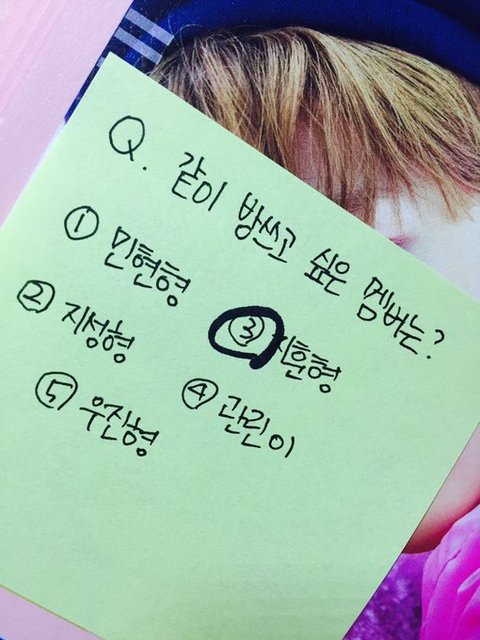 Q. 같이 방쓰고 싶은 멤버는?
① 민현형
② 지성형 ③ 지훈형
⑤ 우진형 ④ 관린이